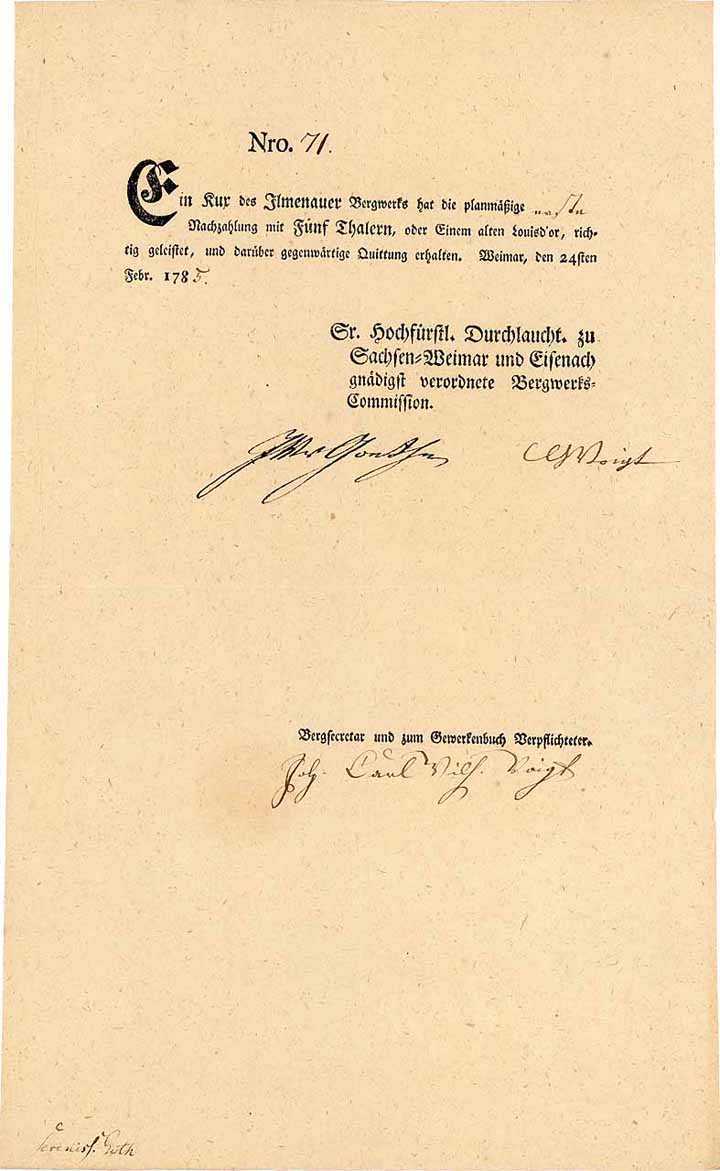 Nro. 71.
Ein Kux des Ilmenauer Bergwerks hat die planmäßige erste
Nachzahlung mit Fünf Thalern, oder Einem alten Louisd'or, rich-
tig geleistet, und darüber gegenwärtige Quittung erhalten. Weimar, den 24sten
Febr. 1785.
Sr. Hochfürstl. Durchlaucht. zu
Sachsen-Weimar und Eisenach
gnädigst verordnete Bergwerks-
Commission.
JWv Goethe CGVoigt
Bergsecretar und zum Gewerkenbuch Verpflichteter.
Joh. Carl Wilh. Voigt
Sereniss. Goth